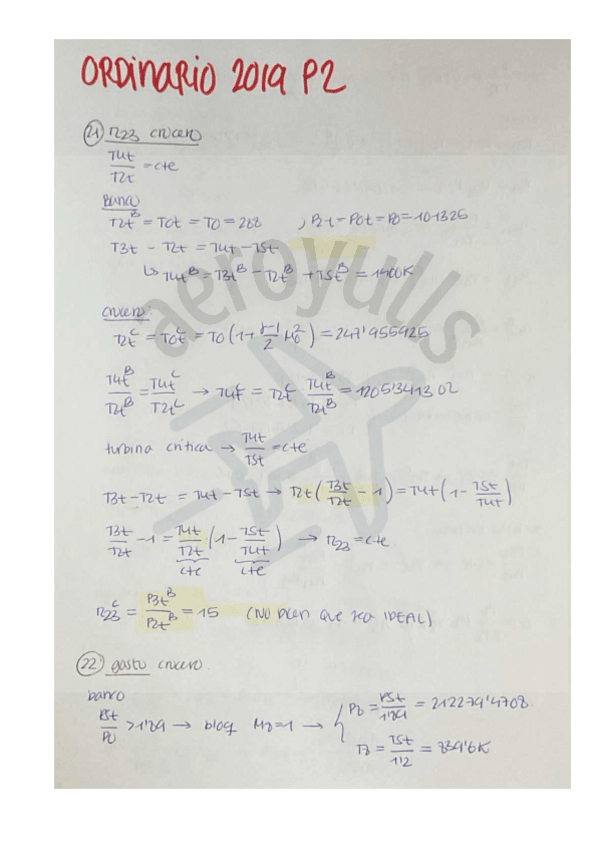 ORDINARIO 2019 P2
21) π23 crucero
T4t/T2t = cte
Banco
T2t^B = T0t = T0 = 288 , P2t = P0t = P0 = 101325
T3t - T2t = T4t - T5t
↳ T4t^B = T3t^B - T2t^B + T5t^B = 1400K
crucero:
T2t^C = T0t^C = T0 (1 + γ-1/2 M0^2) = 247'955925
T4t^B/T2t^B = T4t^C/T2t^C → T4t^C = T2t^C T4t^B/T2t^B = 1205'341302
turbina crítica → T4t/T5t = cte
T3t - T2t = T4t - T5t → T2t (T3t/T2t - 1) = T4t (1 - T5t/T4t)
T3t/T2t - 1 = T4t/T2t (1 - T5t/T4t) → π23 = cte
cte cte
π23^C = P3t^B/P2t^B = 15 (NO DICEN QUE SEA IDEAL)
22) gasto crucero.
banco
P5t/P0 > 1'89 → bloq M8=1 → { P8 = P5t/1'89 = 212279'4708
T8 = T5t/1'2 = 839'6K
aeroyulls